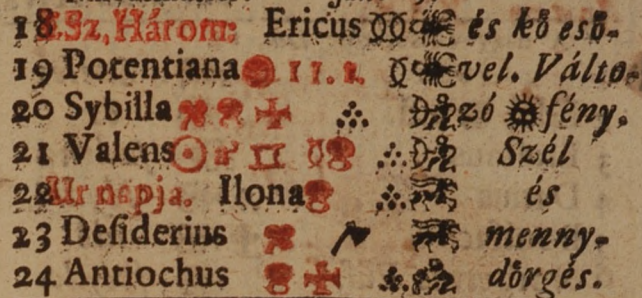 18 F. Sz. Három: Ericus és kö esö-
19 Potentiana 11. 1. vel. Válto-
20 Sybilla zó fény.
21 Valens Szél
22 Ur napja. Ilona és
23 Desiderius menny-
24 Antiochus dörgés.